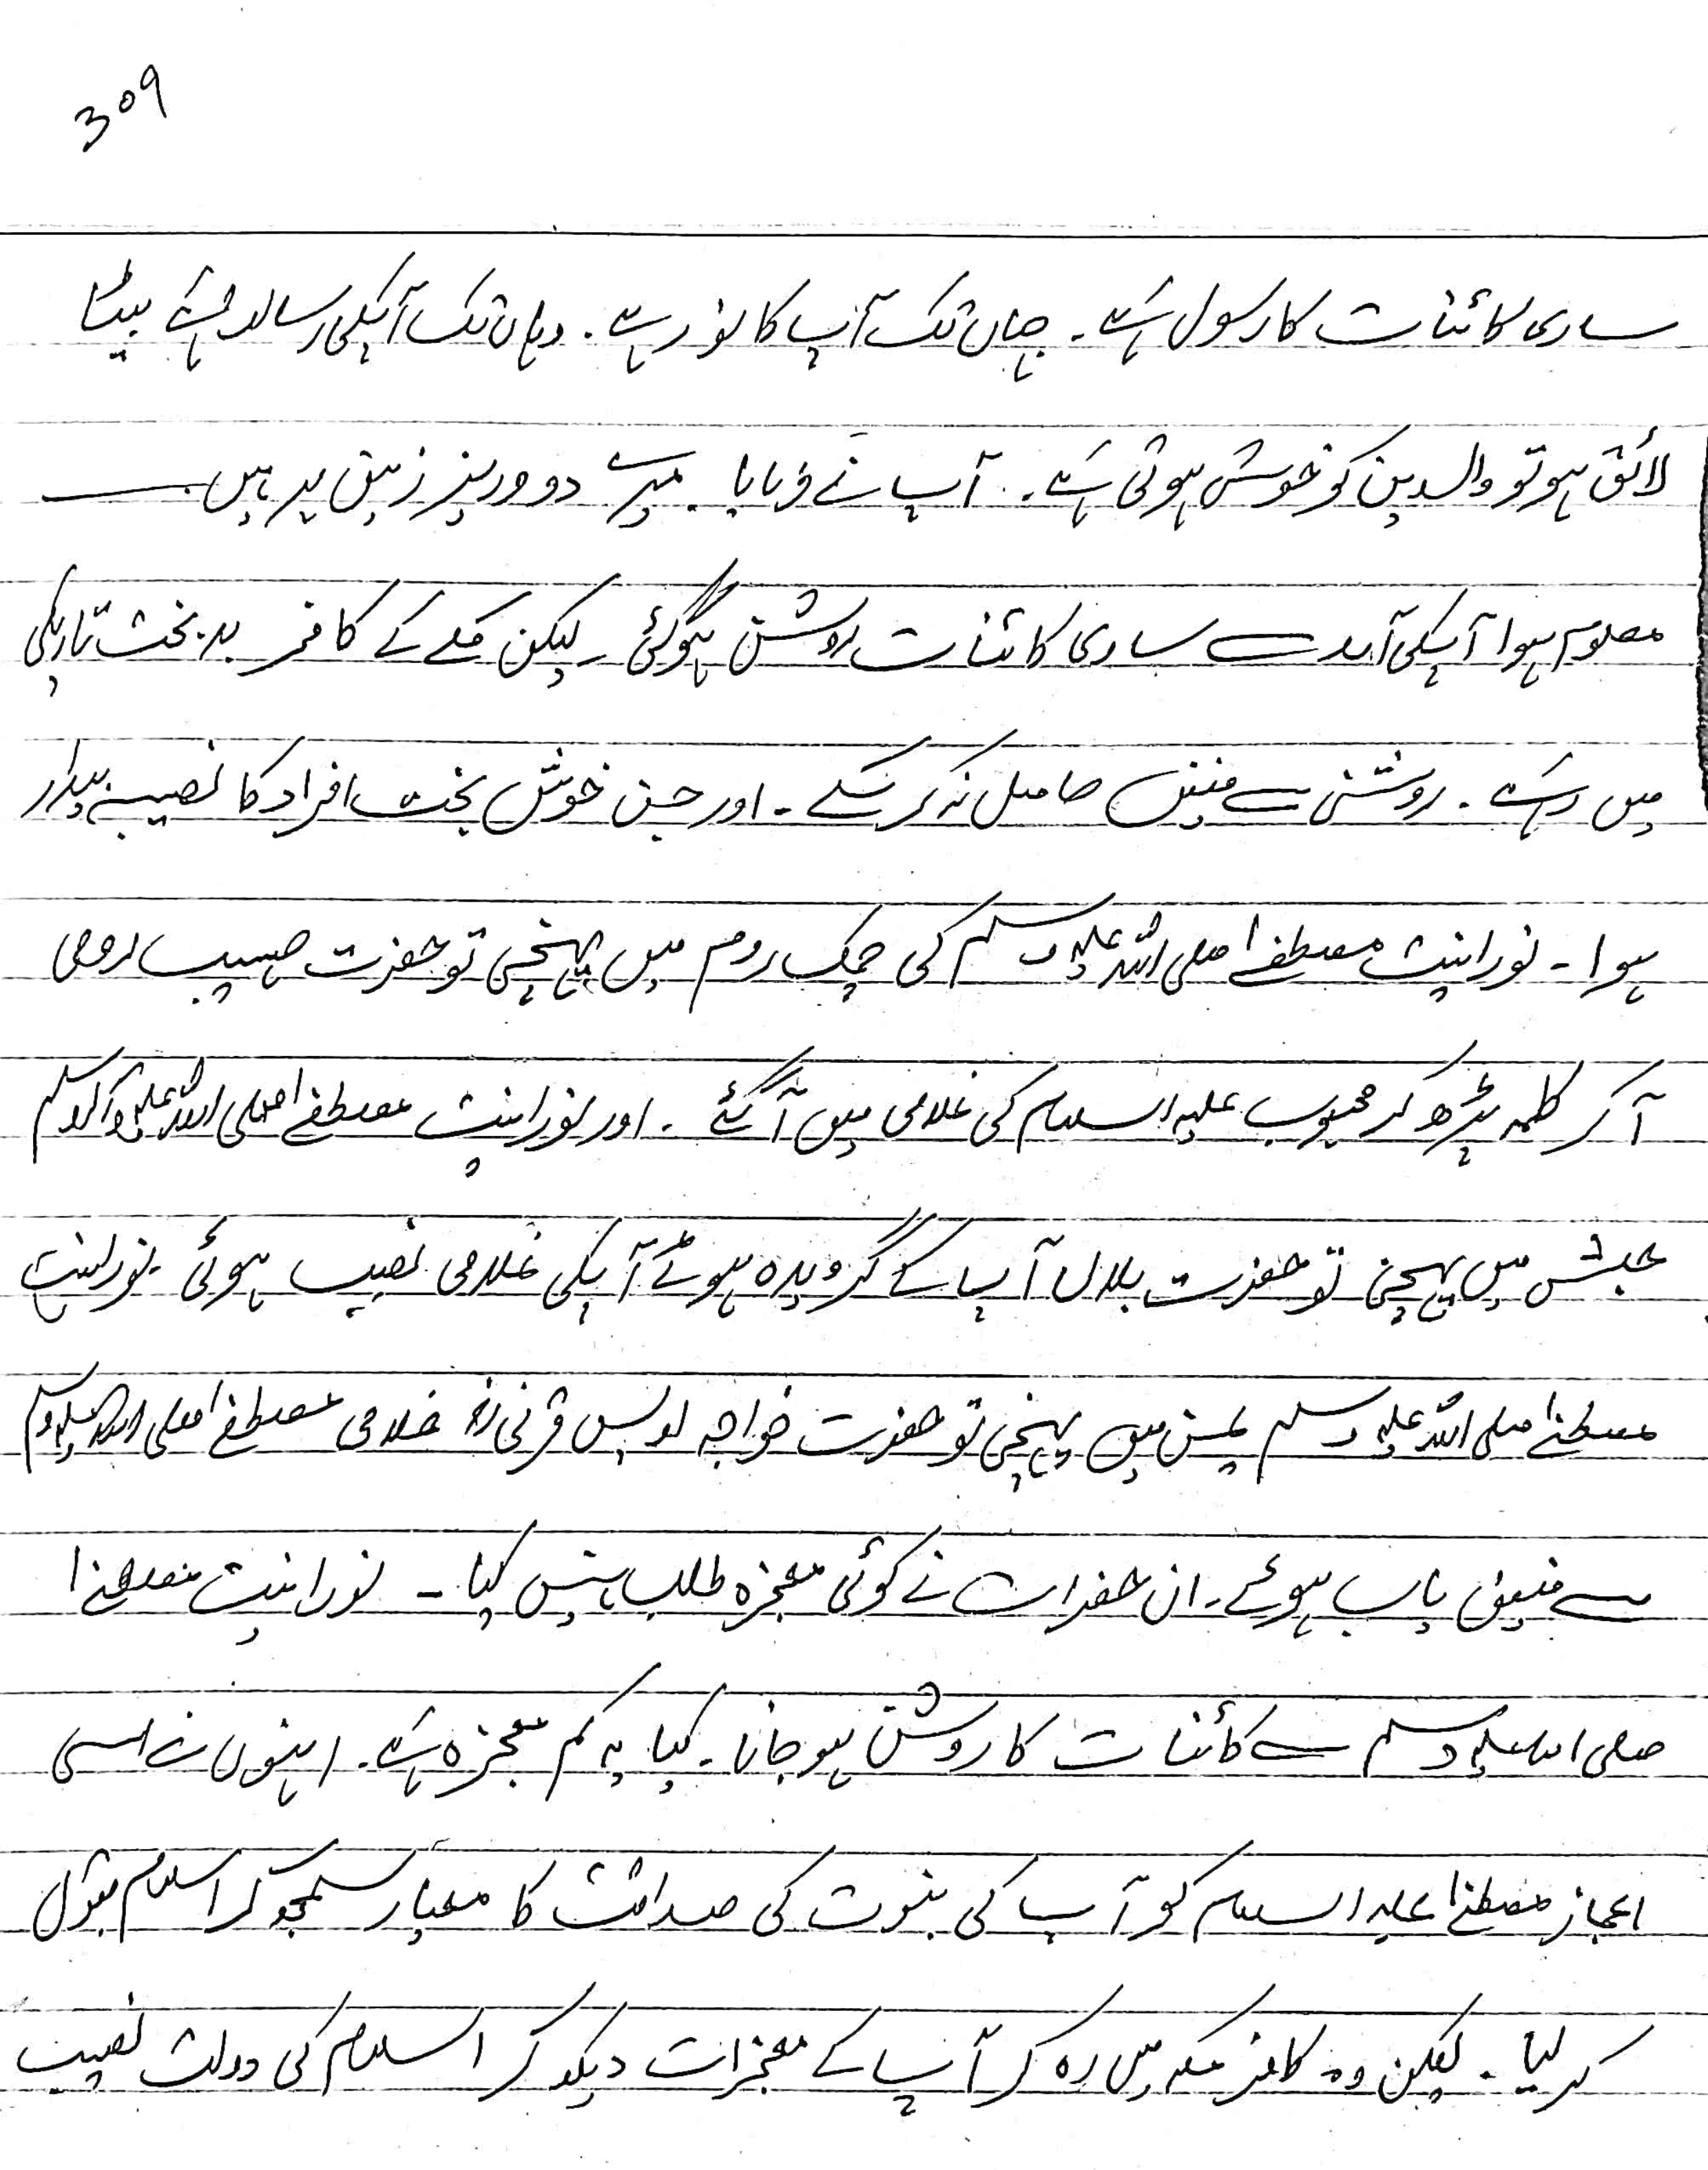 309
ساری کائنات کا رسول ہے۔ جہاں تک آپ کا نور ہے۔ وہاں تک آپکی رسالت ہے بیٹا
لائق ہو تو والدین کو خوشی ہوتی ہے۔ آپ نے فرمایا۔ میرے دو وزیر زمین پر ہیں۔
معلوم ہوا آپکی آمد سے ساری کائنات روشن ہوگئی۔ لیکن مکے کے کافر بدبخت تاریکی
میں رہے۔ روشنی سے فیض حاصل نہ کر سکے۔ اور جن خوش بخت افراد کا نصیب بیدار
ہوا۔ نورانیت مصطفےٰ صلی اللہ علیہ وسلم کی چمک روم میں پہنچی تو حضرت صہیب رومی
آ کر کلمہ پڑھ کر محبوب علیہ السلام کی غلامی میں آ گئے۔ اور نورانیت مصطفےٰ صلی اللہ علیہ وآلہ وسلم
حبش میں پہنچی تو حضرت بلال آپ کے گرویدہ ہوئے آپکی غلامی نصیب ہوئی۔ نورانیت
مصطفےٰ صلی اللہ علیہ وسلم یمن میں پہنچی تو حضرت خواجہ اویس قرنی رضہ غلامی مصطفےٰ صلی اللہ علیہ وسلم
سے فیض یاب ہوئے۔ ان حضرات نے کوئی معجزہ طلب نہیں کیا۔ نورانیت مصطفےٰ
صلی اللہ علیہ وسلم سے کائنات کا روشن ہو جانا۔ کیا یہ کم معجزہ ہے۔ انہوں نے اسی
اعجاز مصطفےٰ علیہ السلام کو آپ کی نبوت کی صداقت کا معیار سمجھ کر اسلام قبول
کر لیا۔ لیکن وہ کافر مکہ میں رہ کر آپ کے معجزات دیکھ کر اسلام کی دولت نصیب